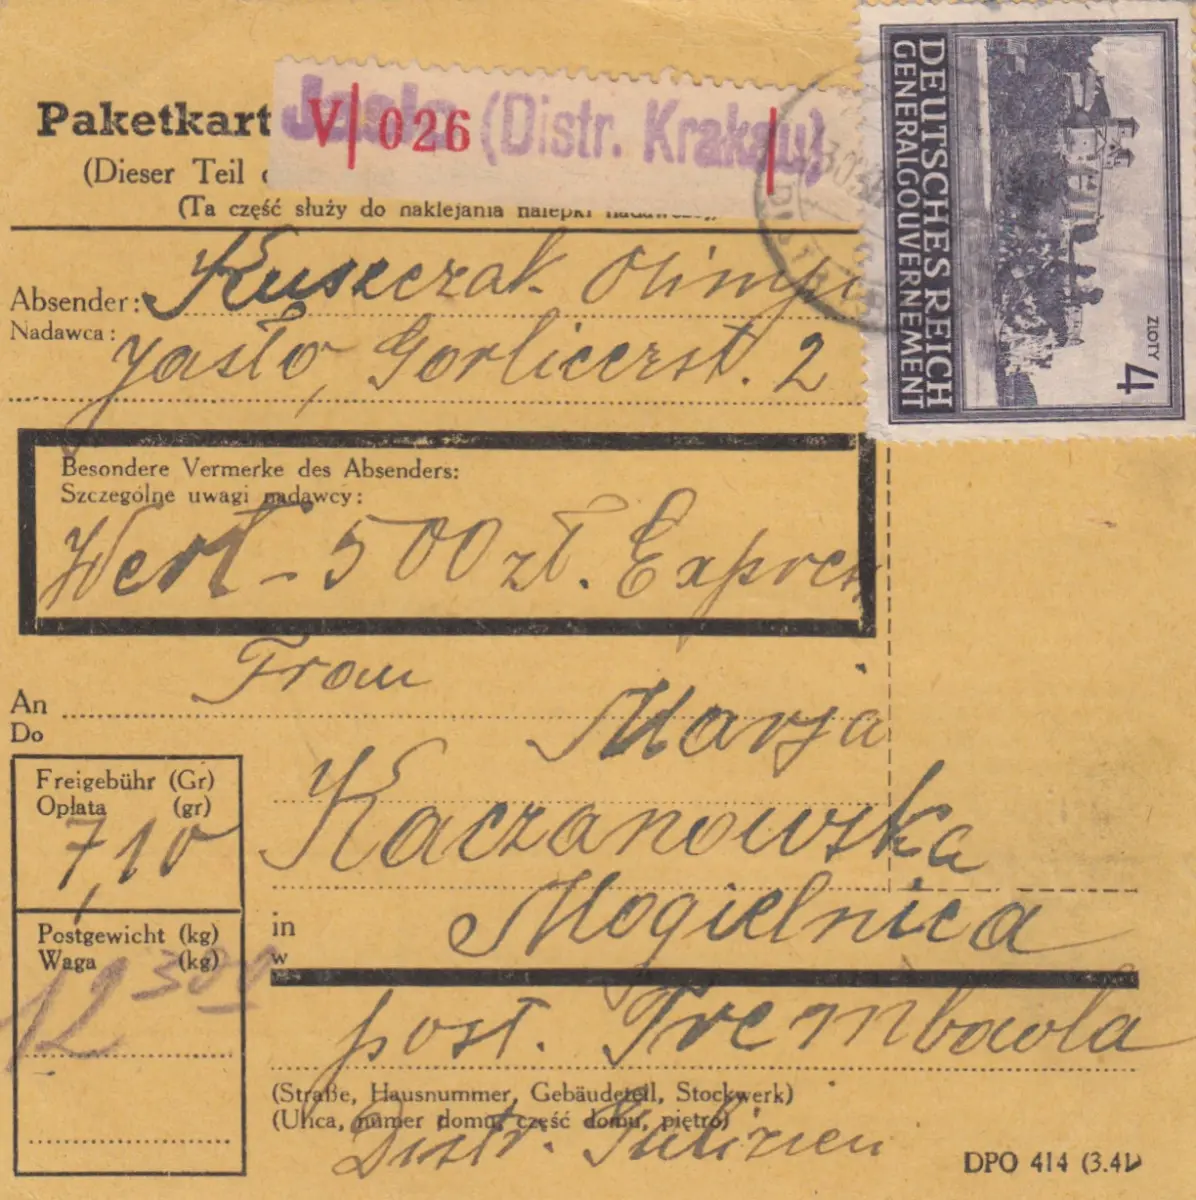 Paketkart
Jaslo (Distr. Krakau)
V 026
(Dieser Teil
(Ta część służy do naklejania nalepki nadawczej)
DEUTSCHES REICH
GENERALGOUVERNEMENT
4
ZLOTY
Absender: Kuszczak Olimpi
Nadawca:
Jasło, Gorlicerst. 2
Besondere Vermerke des Absenders:
Szczególne uwagi nadawcy:
Wert - 500 zł. Expres
An Frau
Do
Marja
Kaczanowska
Freigebühr (Gr)
Opłata (gr)
7,10
in Mogielnica
w
Postgewicht (kg)
Waga (kg)
12 300
post. Trembowla
(Straße, Hausnummer, Gebäudeteil, Stockwerk)
(Ulica, numer domu, część domu, piętro)
Distr. Galizien
DPO 414 (3.41)